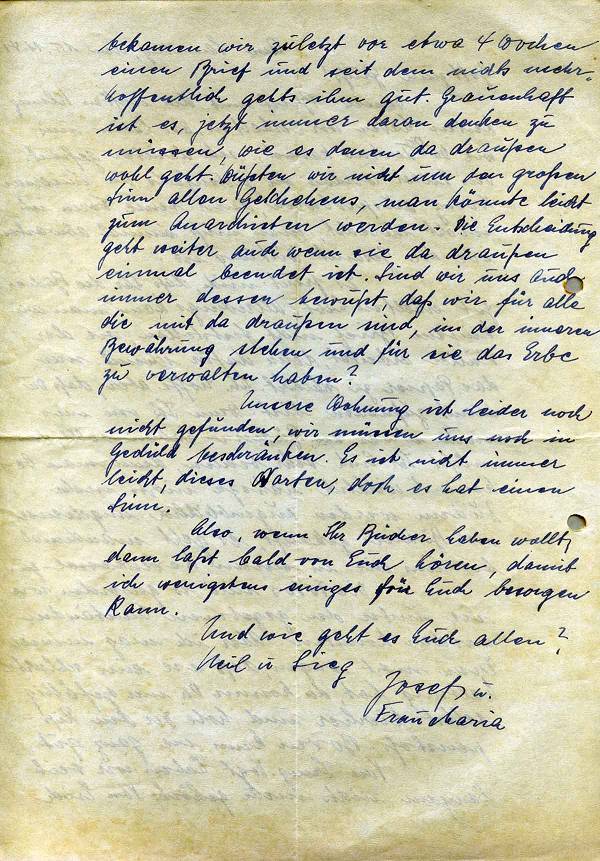 bekamen wir zuletzt vor etwa 4 Wochen
einen Brief und seit dem nichts mehr.
Hoffentlich gehts ihm gut. Grauenhaft
ist es, jetzt immer daran denken zu
müssen, wie es denen da draußen
wohl geht. Wüßten wir nicht um den großen
Sinn allen Geschehens, man könnte leicht
zum Anarchisten werden. Die Entscheidung
geht weiter auch wenn sie da draußen
einmal beendet ist. Sind wir uns auch
immer dessen bewußt, daß wir für alle
die mit da draußen sind, in der inneren
Bewährung stehen und für sie das Erbe
zu verwalten haben?
Unsere Wohnung ist leider noch
nicht gefunden, wir müssen uns noch in
Geduld beschränken. Es ist nicht immer
leicht, dieses Warten, doch es hat einen
Sinn.
Also, wenn Ihr Bücher haben wollt,
dann laßt bald von Euch hören, damit
ich wenigstens einiges für Euch besorgen
kann.
Und wie geht es Euch allen?
Heil u. Sieg
Josef u.